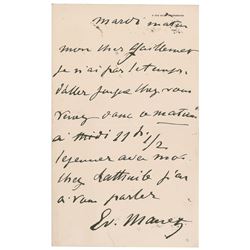 mardi matin
mon cher Guillemet
je n'ai pas le temps
d'aller jusque chez vous
venez donc ce matin
à midi 1/2
déjeuner avec moi
chez j'ai
à vous parler
Ed. Manet